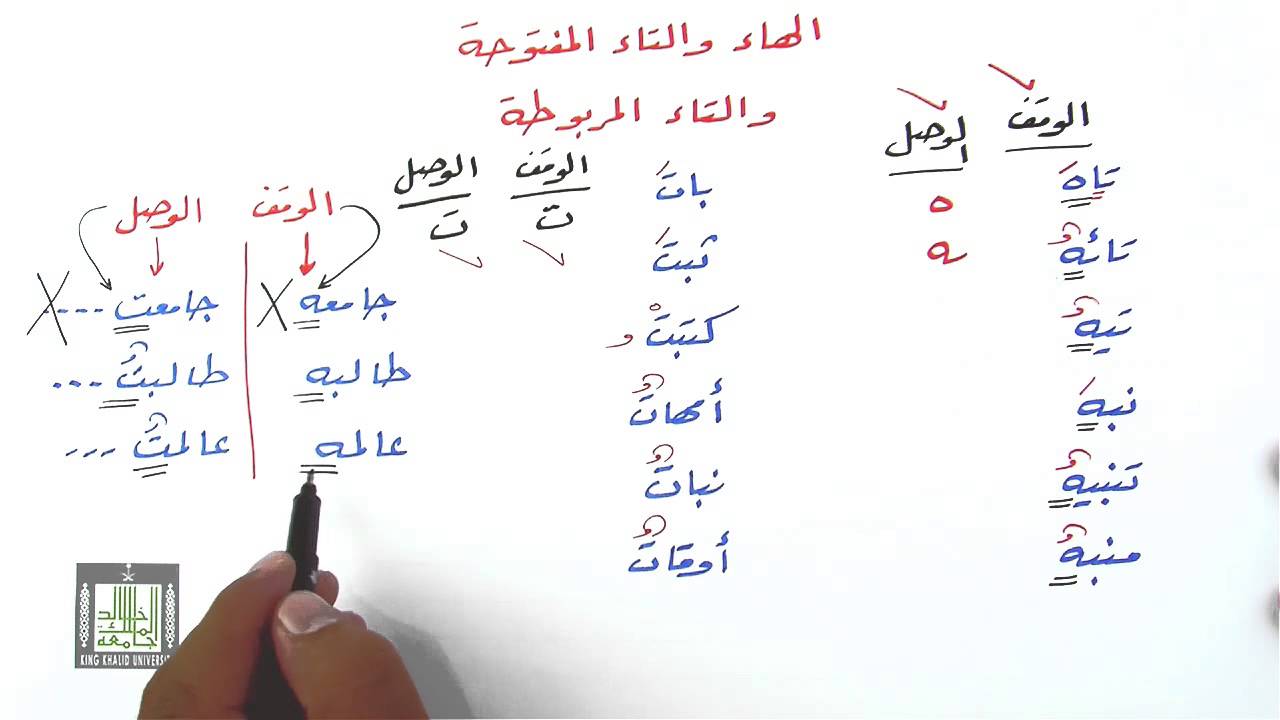 الهاء والتاء المفتوحة
والتاء المربوطة
الوقف
الوصل
تَاهَ
تائهٌ
تيهٌ
نبهَ
تنبيهٌ
منبهٌ
ه
ه
باتَ
ثبتَ
كتبتْ
أمهاتٌ
نباتٌ
أوقاتٌ
الوقف
الوصل
تْ
تَ
الوقف
الوصل
جامعه
جامعت ----
طالبه
طالبتٌ ...
عالمه
عالمتٌ ...
جامعة الملك خالد
KING KHALID UNIVERSITY